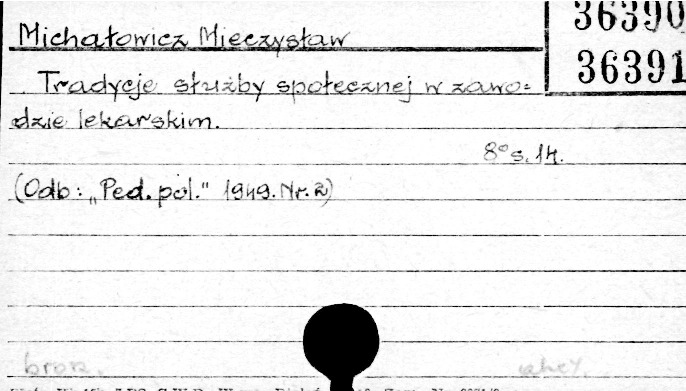 36390
Michałowicz Mieczysław
36391
Tradycje służby społecznej w zawo=
dzie lekarskim.
8° s. 14.
(Odb: „Ped. pol." 1949. Nr. 2)
brosz.